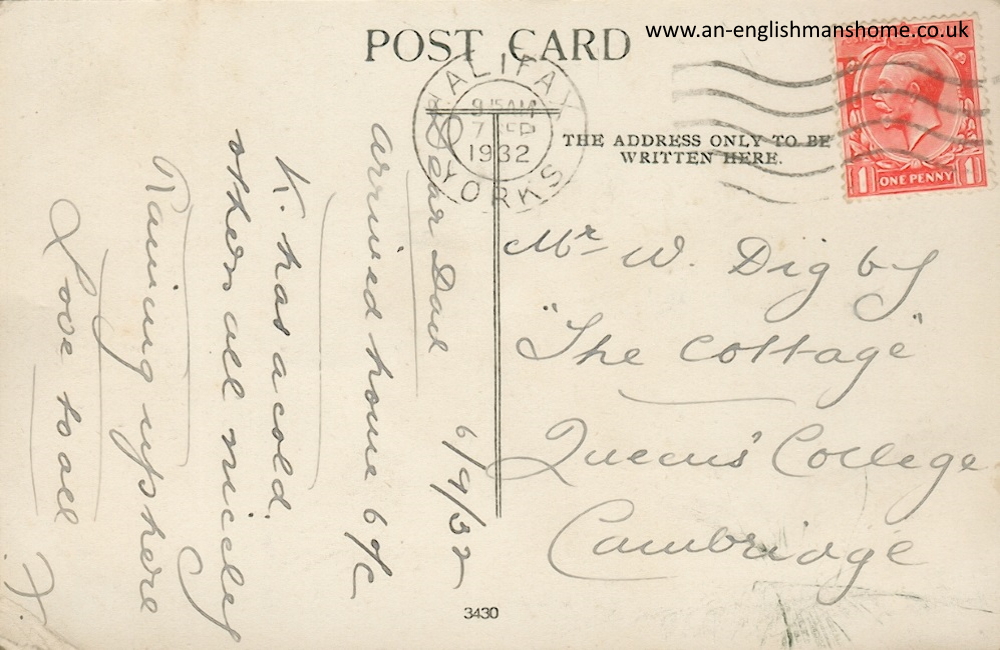 www.an-englishmanshome.co.uk
POST CARD
HALIFAX
9 15 AM
7 SEP
1932
YORKS
THE ADDRESS ONLY TO BE
WRITTEN HERE.
ONE PENNY
1 1
6/9/32
Dear Dad
arrived home
K. has a cold.
others all nicely
Raining up here
Love to all
Mr W. Digby
"The Cottage"
Queens' College
Cambridge
3430